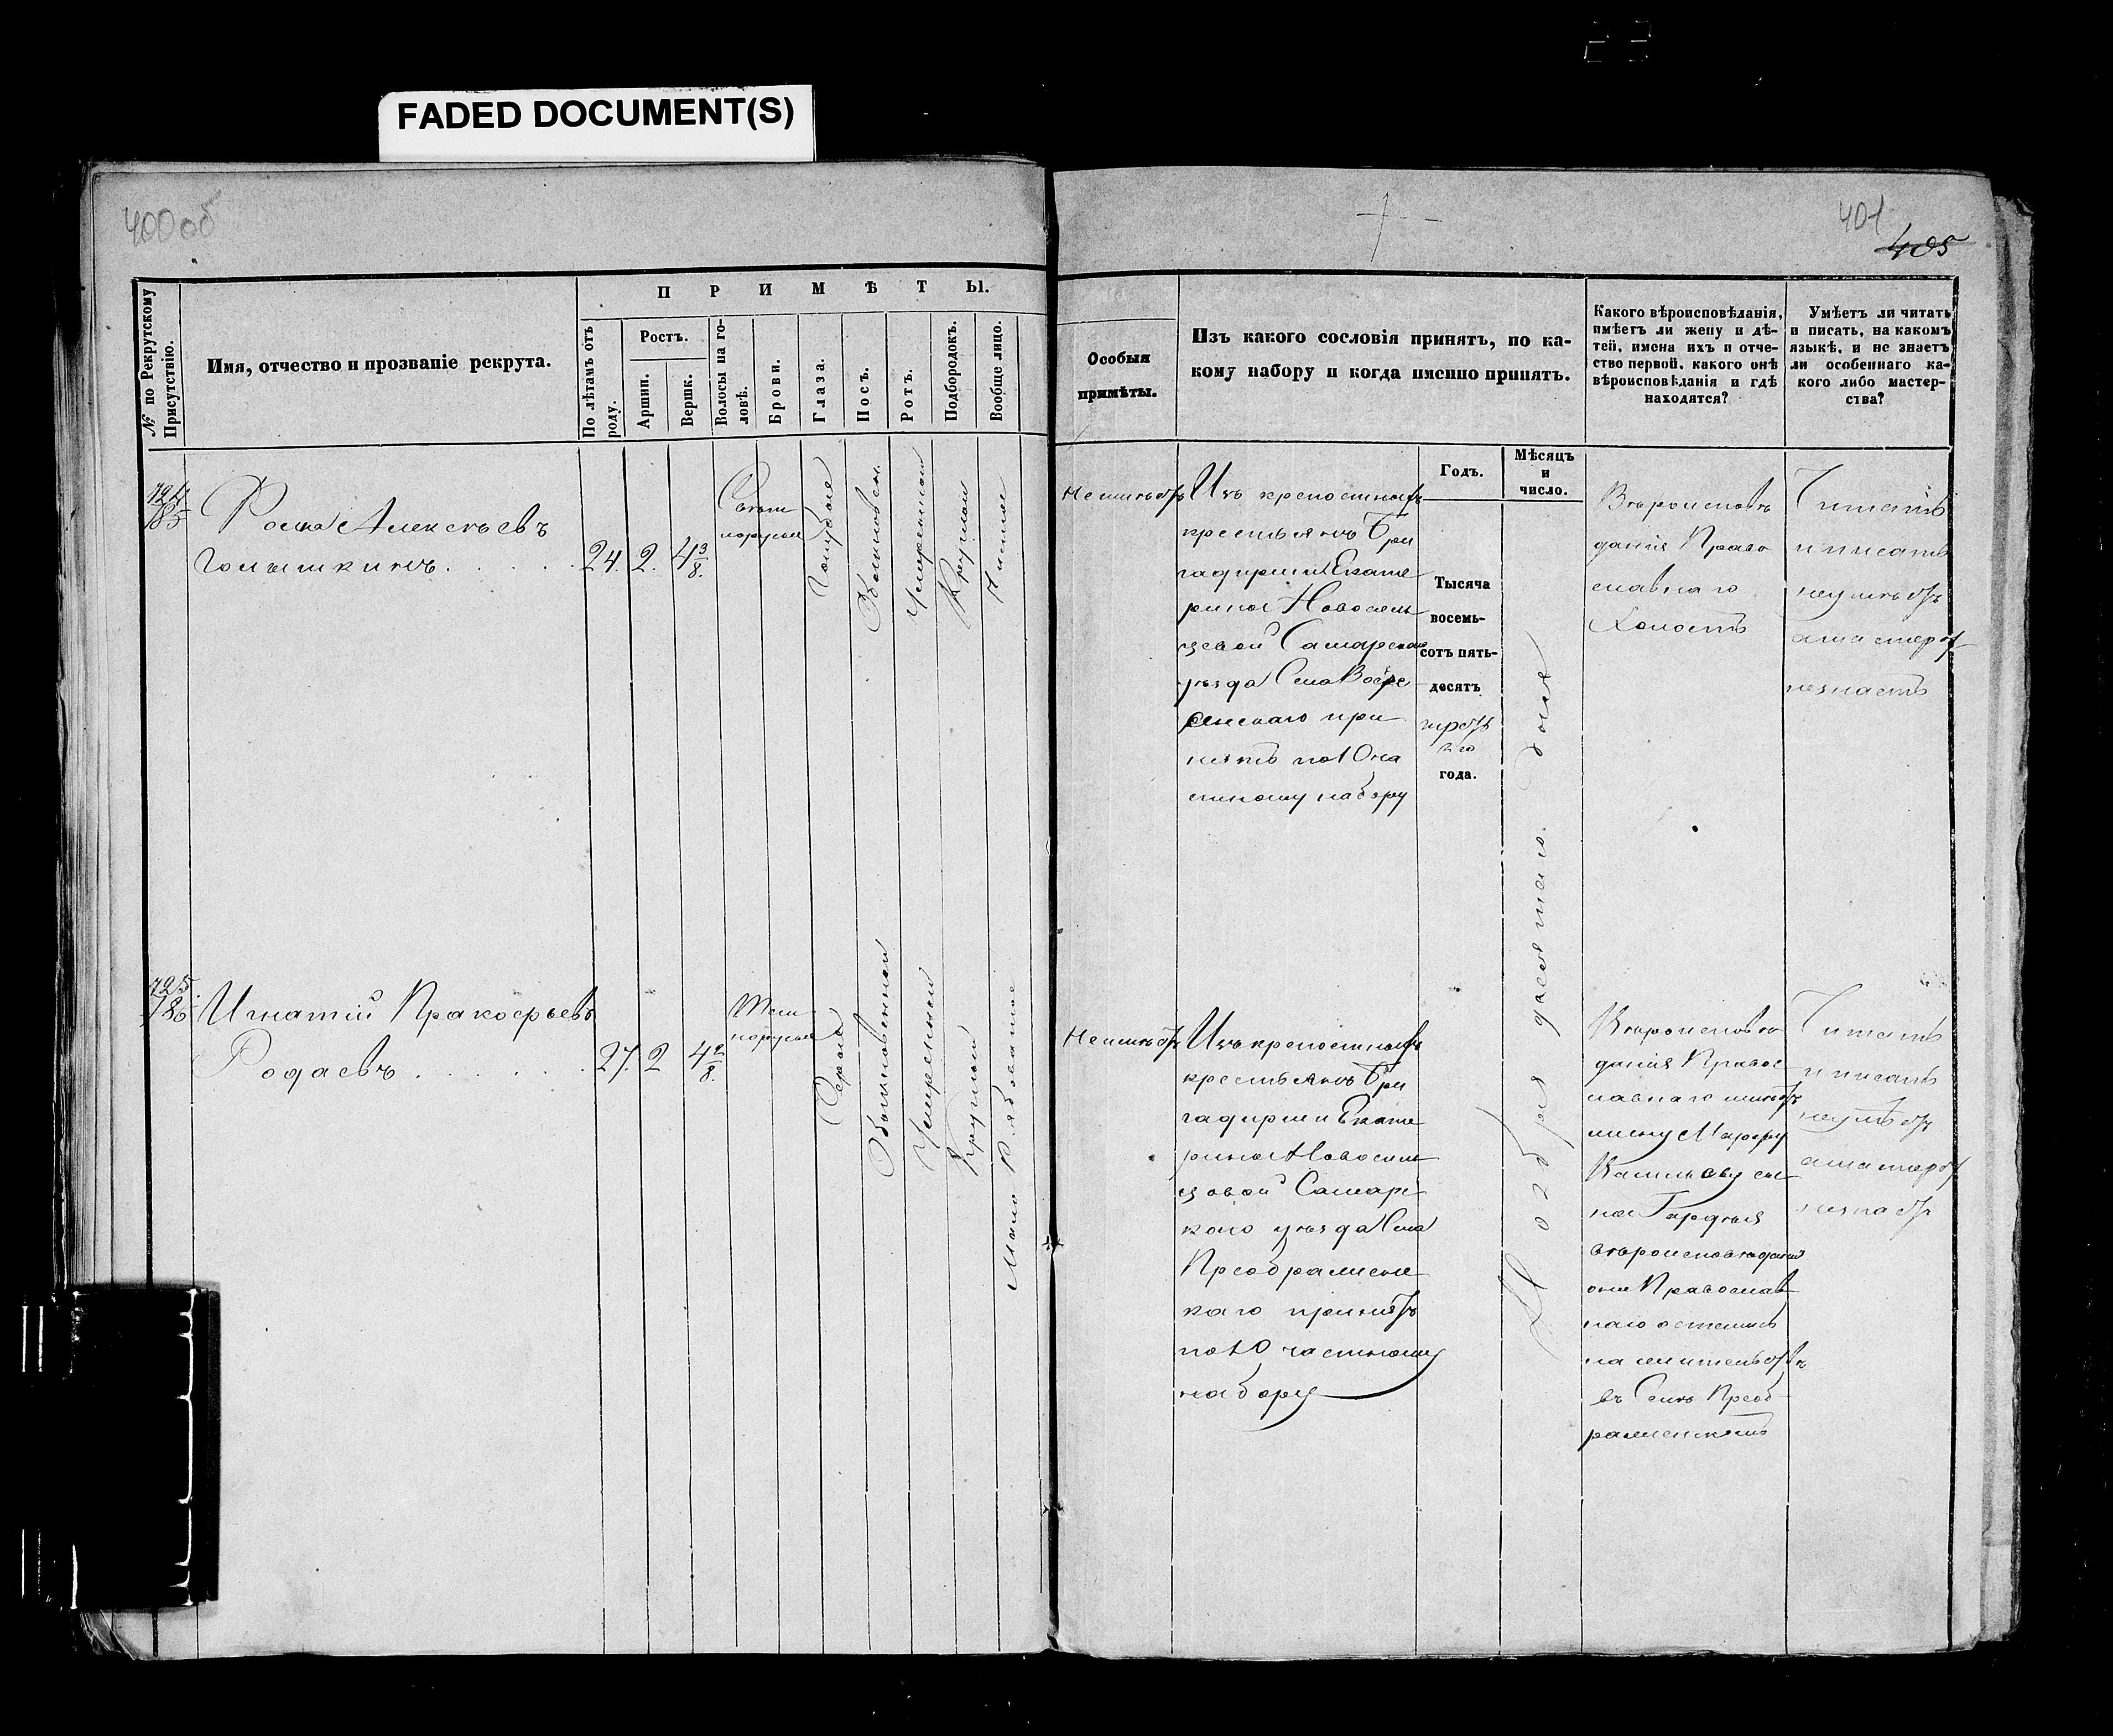 FADED DOCUMENT(S)
400 об
401
405
№ по Рекрутскому Присутствію.
Имя, отчество и прозваніе рекрута.
ПРИМѢТЫ.
По лѣтамъ отъ роду.
Ростъ.
Аршин.
Вершк.
Волосы на го-
ловѣ.
Брови.
Глаза.
Носъ.
Ротъ.
Подбородокъ.
Вообще лицо.
Особыя
примѣты.
Изъ какого сословія принятъ, по ка-
кому набору и когда именно принятъ.
Какого вѣроисповѣданія,
имѣетъ ли жену и дѣ-
тей, имена ихъ и отче-
ство первой, какого онѣ
вѣроисповѣданія и гдѣ
находятся?
Умѣетъ ли читать
и писать, на какомъ
языкѣ, и не знаетъ
ли особеннаго ка-
кого либо мастер-
ства?
Годъ.
Мѣсяцъ
и
число.
724
185
Алексѣевъ
Голышкинъ
24.
2.
4 3/8.
Свѣтло
русые
Голубые
Обыкновен.
Умеренной
Круглой
Чистое
Неимѣетъ
Изъ крепостныхъ
крестьянъ Бри
гадирши Екате
рины Новосель
цевой Самарскаго
уѣзда Села Воскре
сенскаго при
нятъ по 10 на
стному набору
Тысяча
восемь-
сотъ пять-
десять
третья
го
года.
Вѣроисповѣ
данія Право
славнаго
Холостъ
Читать
и писать
неумѣетъ
а мастерст
незнаетъ
725
186
Игнатій Пракофьевъ
Родаевъ
27.
2
4 2/8.
Темно
русые
Серые
Обыкновенной
Умеренной
Круглой
Мало Рябоватое
Неимѣетъ
Изъ крепостныхъ
крестьянъ Бри
гадирши Екате
рины Новосиль
цовой Самарс
каго уѣзда Села
Преображенс
каго принятъ
по 10 частному
набору
Ноября девятаго дня
Вѣроисповѣ
данія Правос
лавнаго имѣетъ
жену Марфу
Васильеву сы
на Гордѣя
вѣроисповѣданія
они Православ
наго остались
на жительствѣ
въ Селѣ Преоб
раженскомъ
Читать
и писать
неумѣетъ
а мастерст
незнаетъ